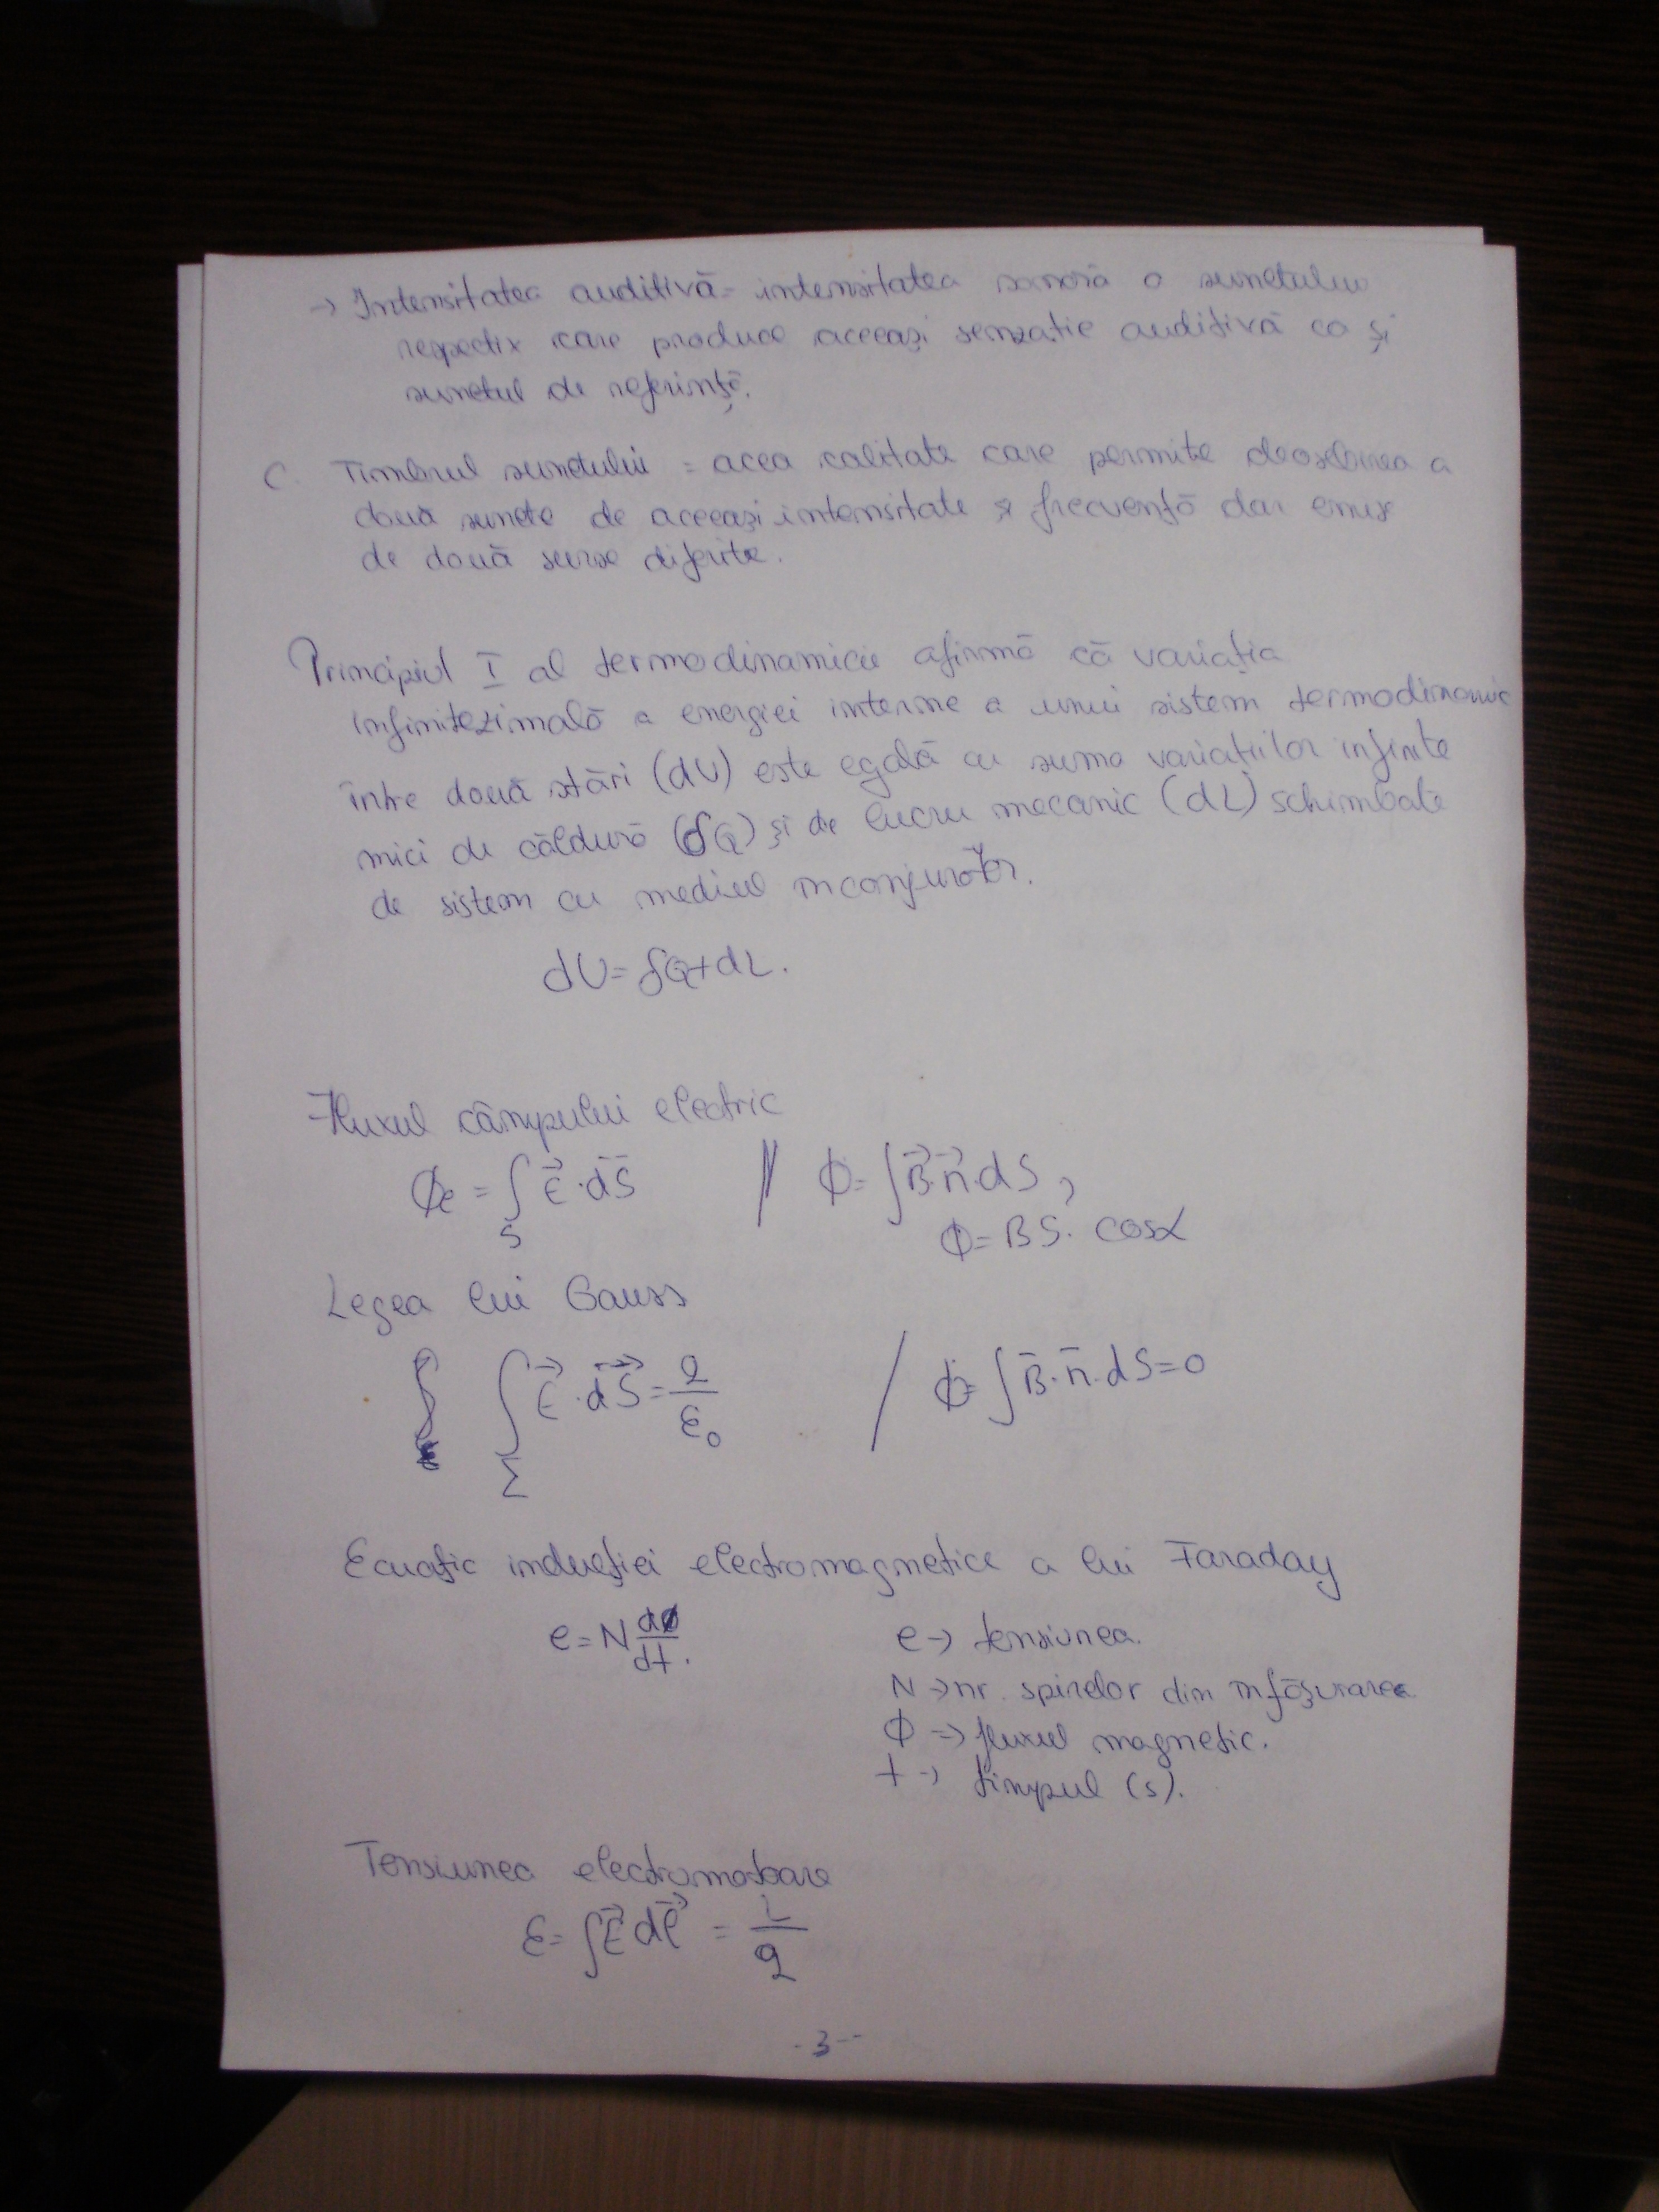 → Intensitatea auditivă = intensitatea sonoră a sunetului
respectiv care produce aceeași senzație auditivă ca și
sunetul de referință.
C. Timbrul sunetului = acea calitate care permite deosebirea a
două sunete de aceeași intensitate și frecvență dar emise
de două surse diferite.
Principiul I al termodinamicii afirmă că variația
infinitezimală a energiei interne a unui sistem termodinamic
între două stări (dU) este egală cu suma variațiilor infinite
mici de căldură (δQ) și de lucru mecanic (dL) schimbate
de sistem cu mediul înconjurător.
dU = δQ + dL.
Fluxul câmpului electric
Φe = ∫_S E⃗ · dS̄ // Φ = ∫ B⃗ · n⃗ · dS ,
Φ = B S · cos α
Legea lui Gauss
∮ ∫_Σ E⃗ · dS⃗ = q/ε₀ / Φ = ∫ B̄ · n̄ · dS = 0
Ecuația inducției electromagnetice a lui Faraday
e = N dΦ/dt . e → tensiunea.
N → nr. spirelor din înfășurarea
Φ → fluxul magnetic.
t → timpul (s).
Tensiunea electromotoare
ε = ∫ E⃗ dl⃗ = L/q
- 3 -